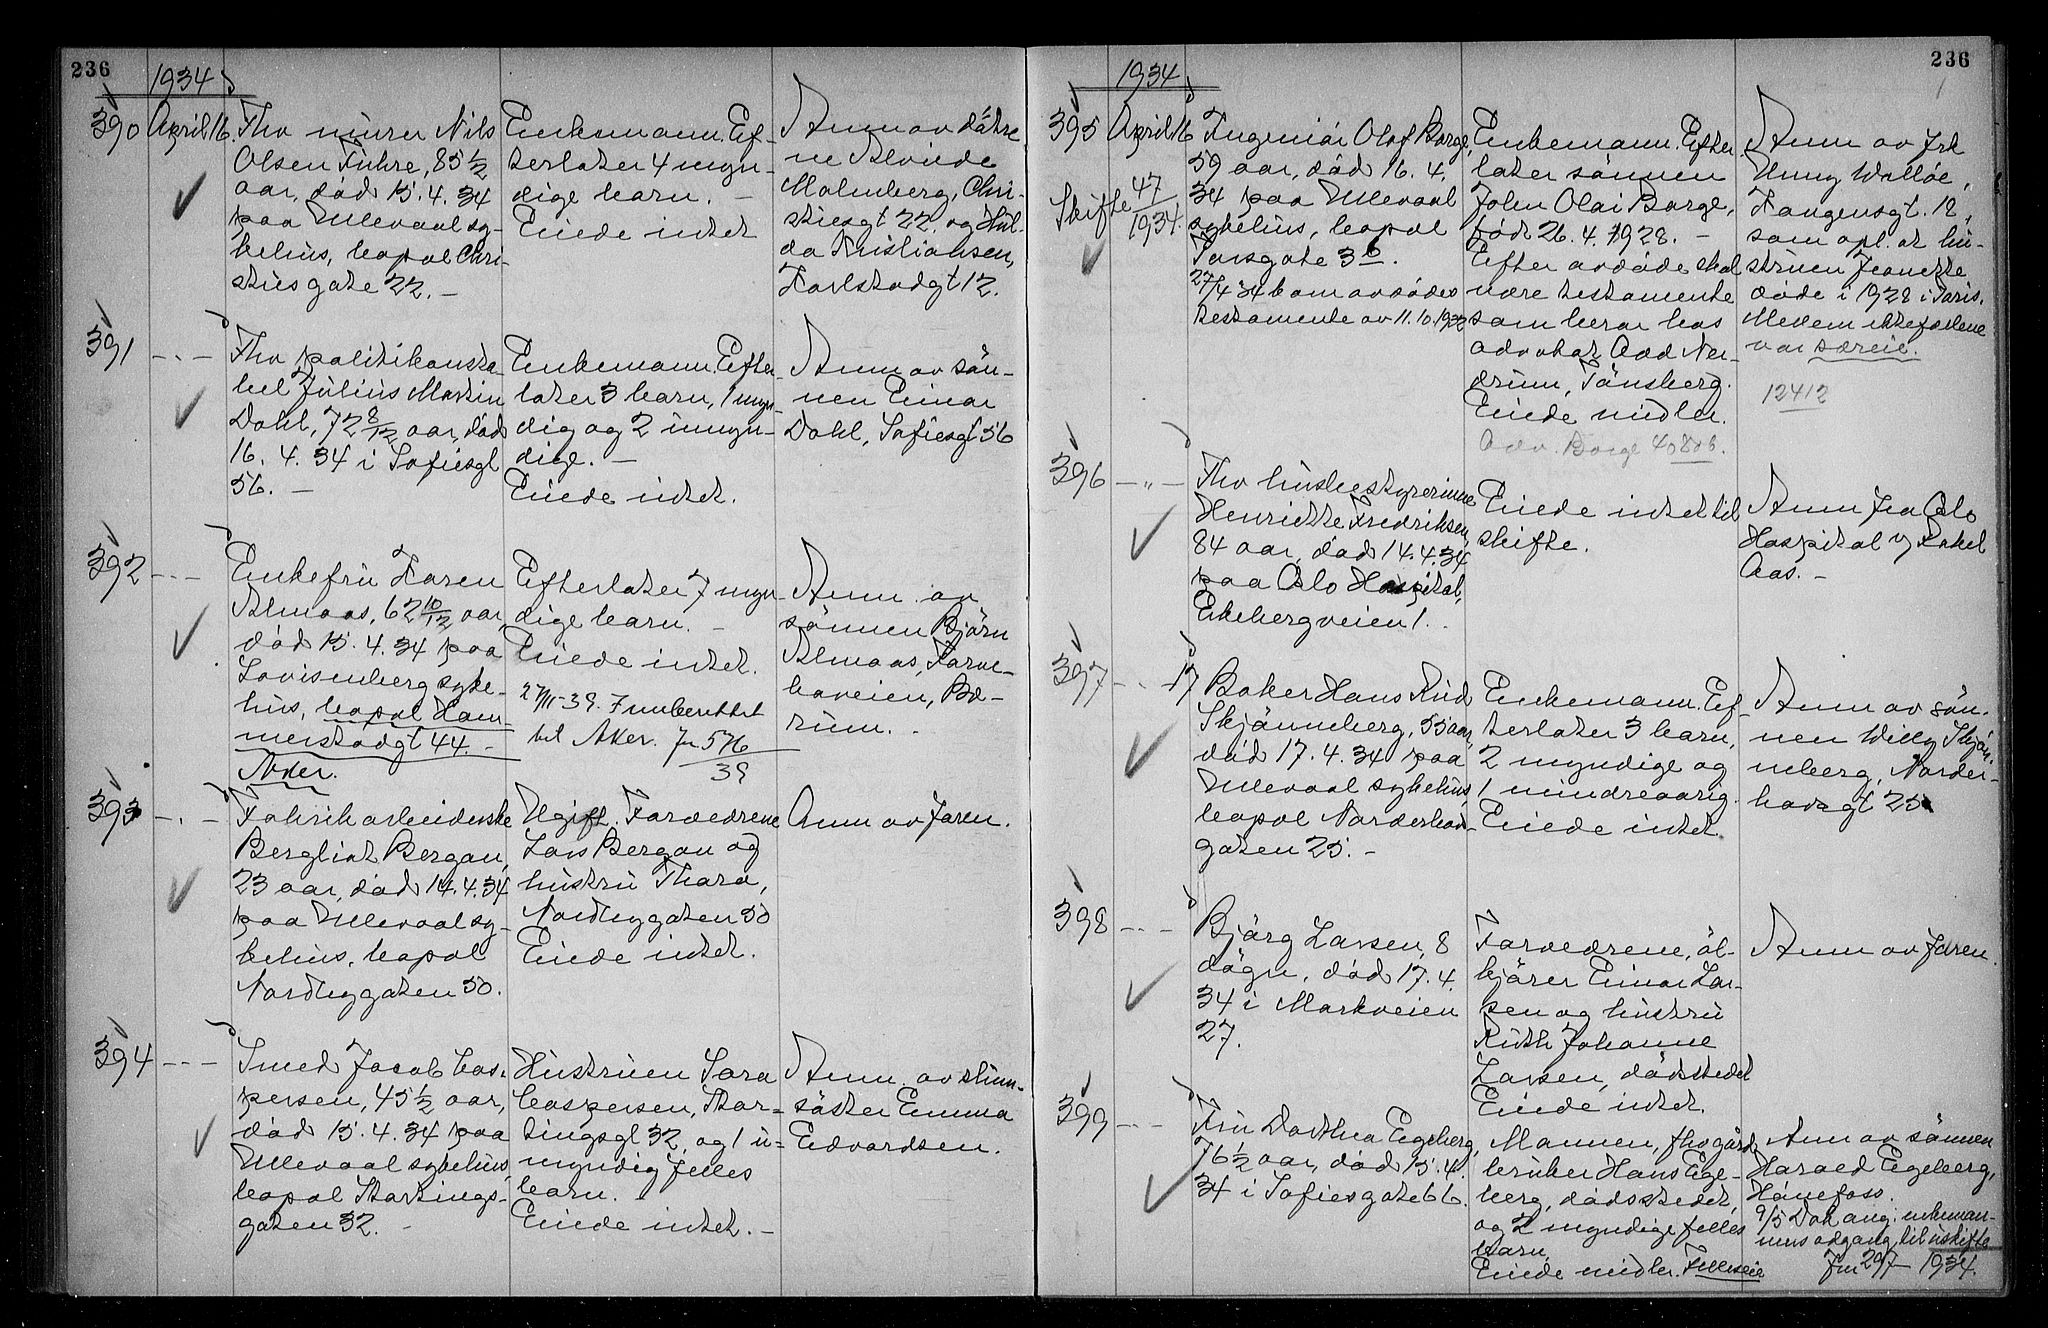 236
1934
390 April 16. Fhv murer Nils
Olsen Fuhre, 85 1/2
aar, död 15.4.34
paa Ullevaal sy-
kehus, bopæl Chri-
stiesgate 22. –
Enkemann. Ef-
terlater 4 myn-
dige barn. –
Eiede intet
Anm av døtre
ne Alvilde
Malmberg, Chri-
stiesgt 22 og Hul-
da Kristiansen,
Karlstadgt 12.
391 – " – Fhv politikonsta-
bel Julius Martin
Dahl, 72 8/12 aar, död
16. 4. 34 i Sofiesgt
56. –
Enkemann. Efter
later 3 barn, 1 myn
dig og 2 umyn-
dige. –
Eiede intet.
Anm av sön-
nen Einar
Dahl, Sofiesgt 56
392 – " – Enkefru Karen
Almaas, 62 10/12 aar,
död 15.4.34 paa
Lovisenberg syke-
hus, bopæl Ham-
merstadgt 44. –
Aker.
Efterlater 7 myn
dige barn. –
Eiede intet.
27/11-39. Innberettet
til Aker. Jn 576/39
Anm. av
sönnen Björn
Almaas,
haveien, Bæ-
rum. –
393 – " – Fabrikarbeiderske
Bergliot Bergan,
23 aar, död 14.4.34
paa Ullevaal sy-
kehus, bopæl
Nordbygaten 50.
Ugift. Forældrene
Lars Bergan og
hustru Thora,
Nordbygaten 50
Eiede intet.
Anm av faren.
394 – " – Smed Jacob Cas-
persen, 45 1/2 aar,
död 15.4.34 paa
Ullevaal sykehus,
bopæl Stortings-
gaten 32. –
Hustruen Sara
Caspersen, Stor-
tingsgt 32 og 1 u-
myndig felles
barn.
Eiede intet. –
Anm. av stum-
söster Emma
Edvardsen.
236
1934
395 April 16 Ingeniör Olaf Borge,
59 aar, död 16. 4.
34 paa Ullevaal
sykehus, bopæl
Torsgate 3 b.
27/4 34 kom avdödes
testamente av 11.10.1932
Skifte 47/1934.
Enkemann. Efter
later sönnen
John Olai Borge,
född 26.4.1928. –
Efter avdöde skal
være testamente
som beror hos
advokat Odd Ner-
drum, Tönsberg.
Eiede midler.
Adv. Borge 40808.
Anm av frk
Unny Walløe,
Langensgt. 12,
som opl. at hu-
struen Jeanette
döde i 1928 i Paris.
Mellem ektefællene
var særeie.
12412
396 – " – Fhv husbestyrerinne
Henriette Fredriksen,
84 aar, död 14.4.34
paa Oslo Hospital,
Ekebergveien 1. –
Eiede intet til
skifte.
Anm fra Oslo
Hospital v/ Rakel
Aas. –
397 – " – 17 Baker Hans Rud
Skjönneberg, 55 aar,
död 17.4.34 paa
Ullevaal sykehus,
bopæl Norderhov-
gaten 25. –
Enkemann. Ef-
terlater 3 barn,
2 myndige og
1 mindreaarig
Eiede intet.
Anm av sön-
nen Willy Skjön-
neberg, Norder-
hovsgt 25
398 – " – Björg Larsen, 8
dögn, död 17.4.
34 i Markveien
27.
Forældrene, öl-
kjörer Einar Lar-
sen og hustru
Ruth Johanne
Larsen, dödsstedet
Eiede intet.
Anm av faren.
399 – " – Fru Dorthea Egeberg,
76 1/2 aar, död 15.4.
34 i Sofiesgate 66.
Mannen, fhv gård
bruker Hans Ege-
berg, dödsstedet,
og 2 myndige felles
barn.
Eiede midler. Felleseie
Anm av sönnen
Harald Egeberg,
Hönefoss.
9/5 Dok ang. enkeman-
nens adgang til uskifte
Jnr 297 – 1934.